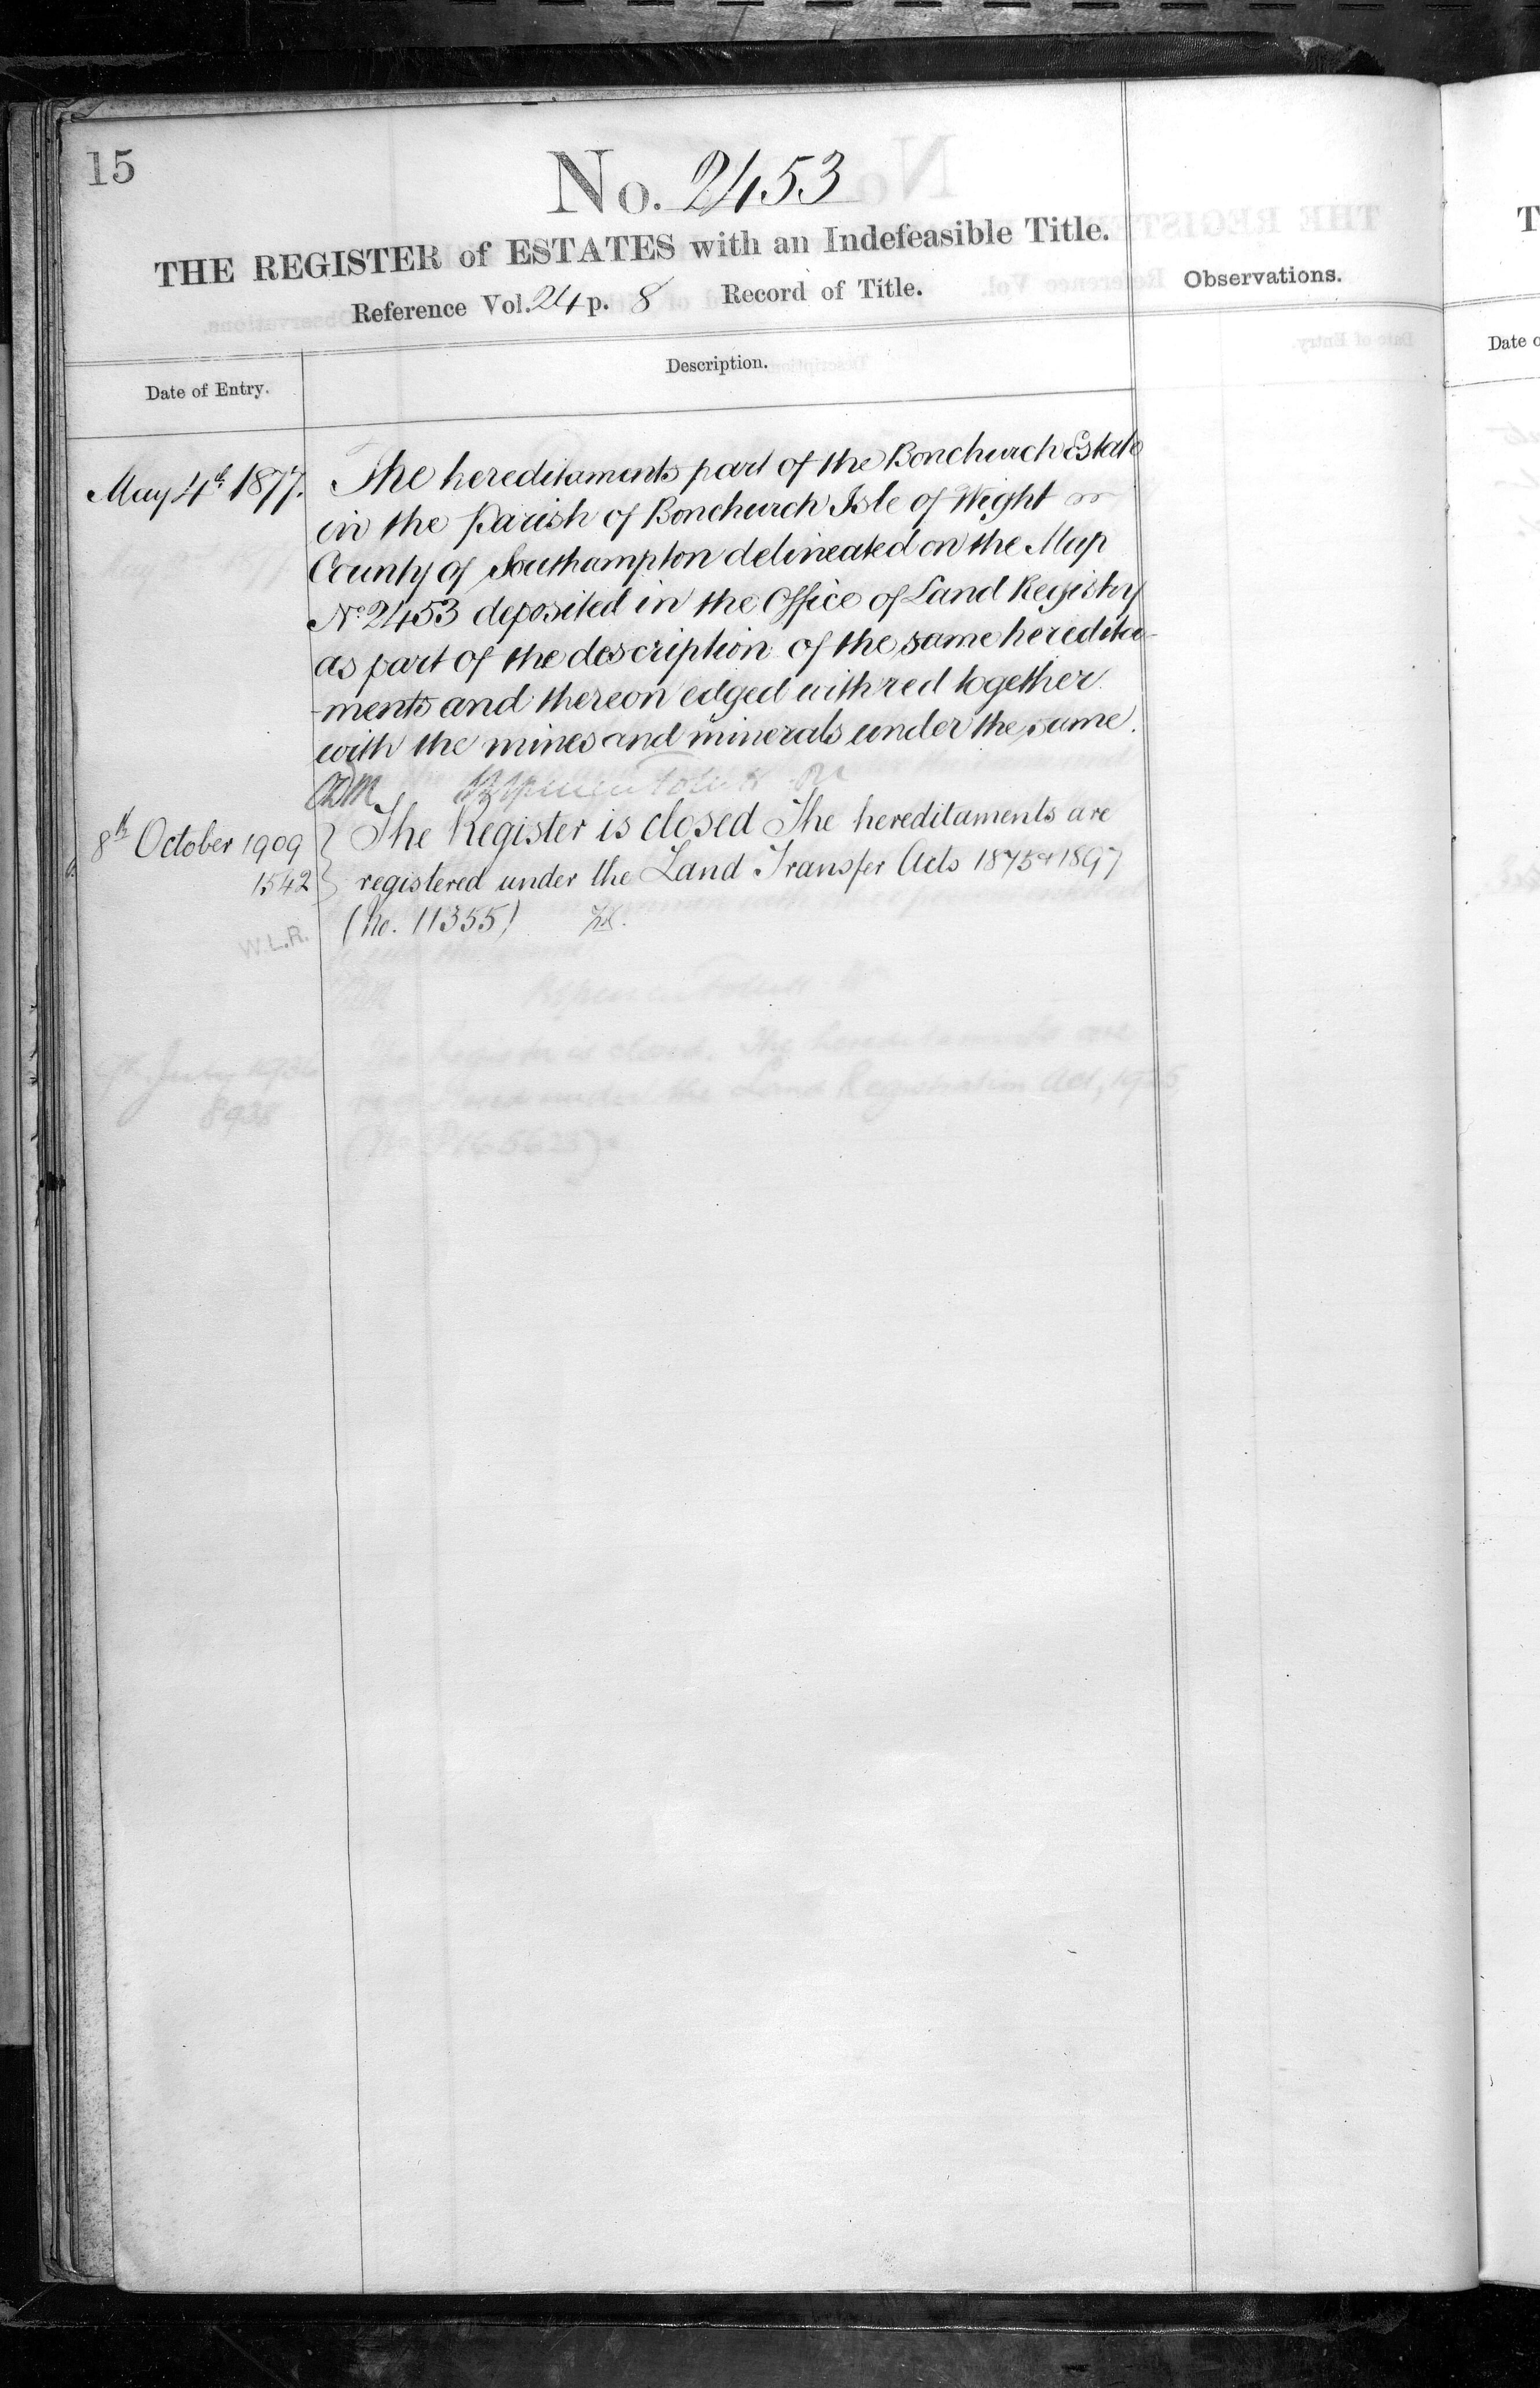 15
No. 2453
THE REGISTER of ESTATES with an Indefeasible Title.
Reference Vol. 24 p. 8 Record of Title.
Observations.
Date of Entry.
Description.
May 4th 1877.
The hereditaments part of the Bonchurch Estate
in the Parish of Bonchurch Isle of Wight
County of Southampton delineated on the Map
No. 2453 deposited in the Office of Land Registry
as part of the description of the same heredita-
-ments and thereon edged with red together
with the mines and minerals under the same.
8th October 1909
1542
The Register is closed The hereditaments are
registered under the Land Transfer Acts 1875 & 1897
(No. 11355)
W.L.R.
The Register is closed. The hereditaments are
registered under the Land Registration Act, 1925
T
Date o